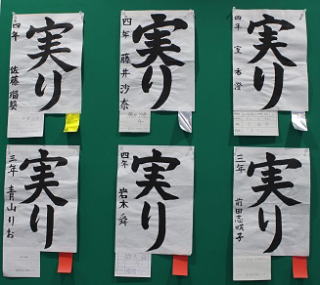 実り
四年 佐藤瑠梨
実り
四年 藤井沙奈
実り
四年
実り
三年 青山りお
実り
四年 岩本舜
実り
三年 前田志咲子